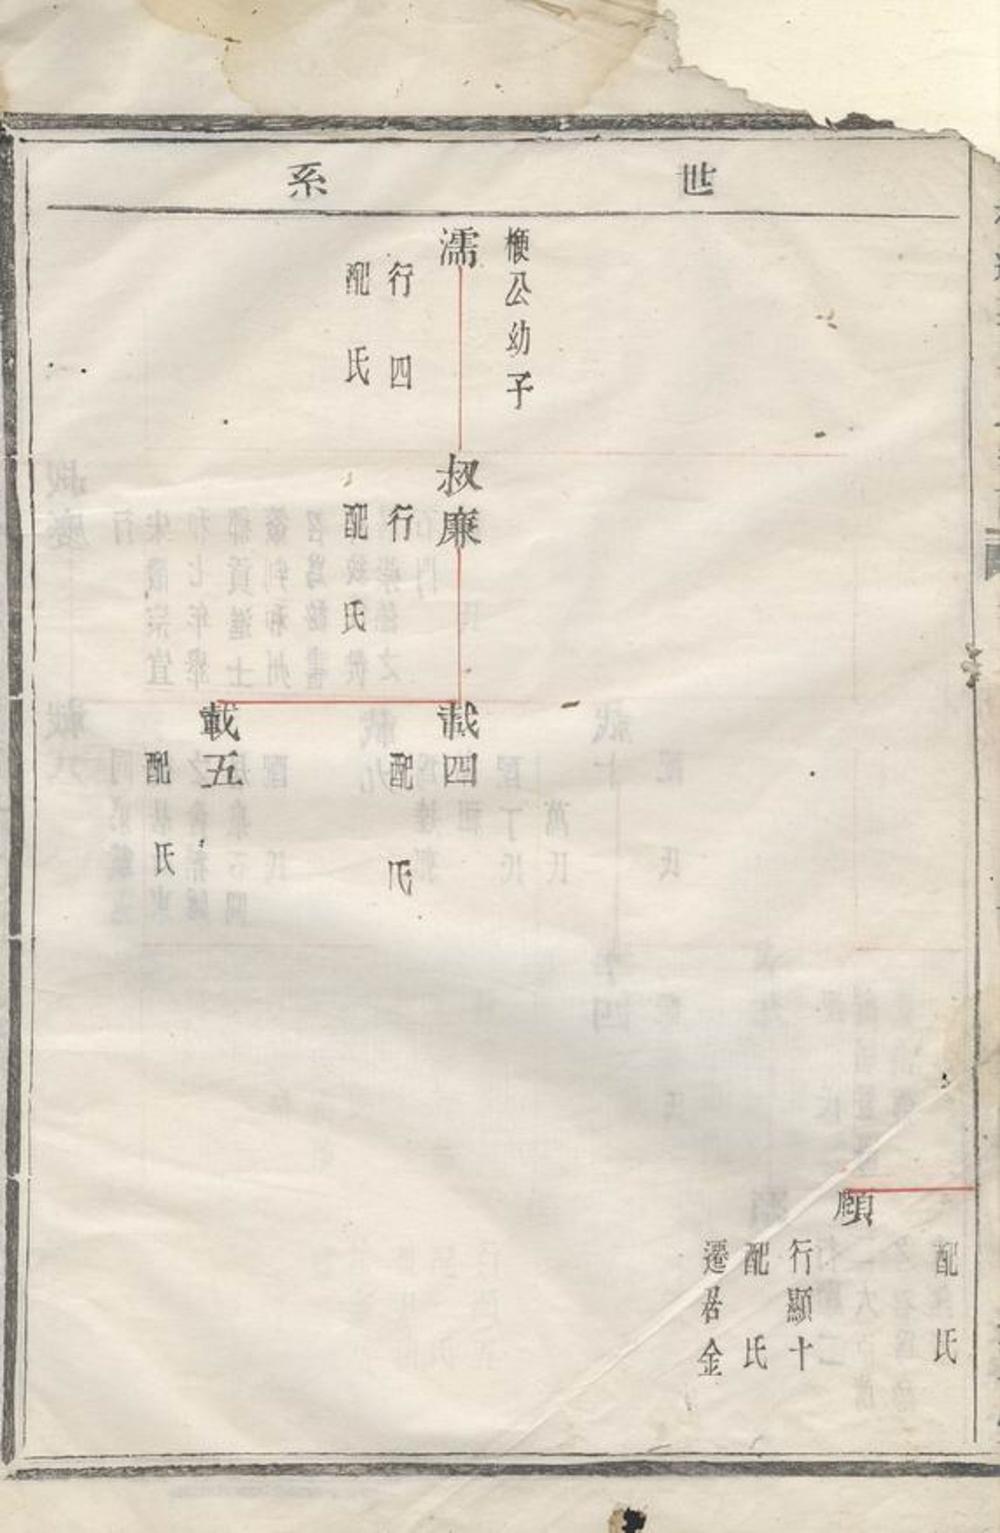 世系
配氏
顧
行顯十
配氏
遷居金
公幼子
濡
行四
配氏
叔廉
行
配氏
載四
配氏
載五
配氏